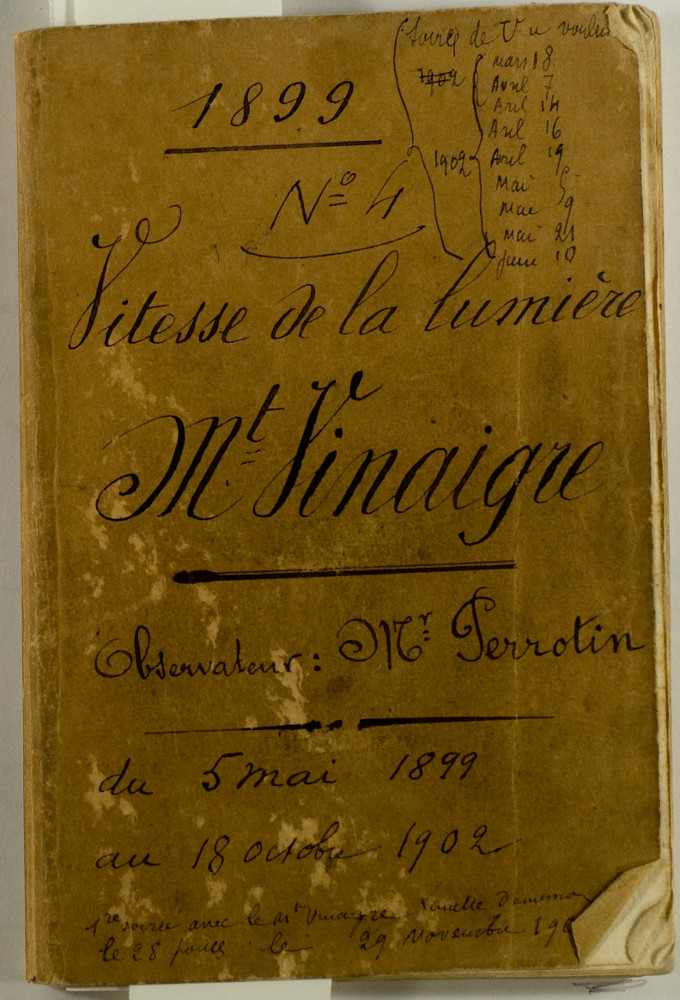 1899
Nº 4
Soirée de
1902
mars 18
Avril 7
Avril 14
Avril 16
1902
Avril 19
Mai 5
Mai 9
Mai 21
Juin 10
Vitesse de la lumière
Mt Vinaigre
Observateur : Mr Perrotin
du 5 mai 1899
au 18 octobre 1902
1re soirée avec le Mt Vinaigre
le 28 le 29 Novembre